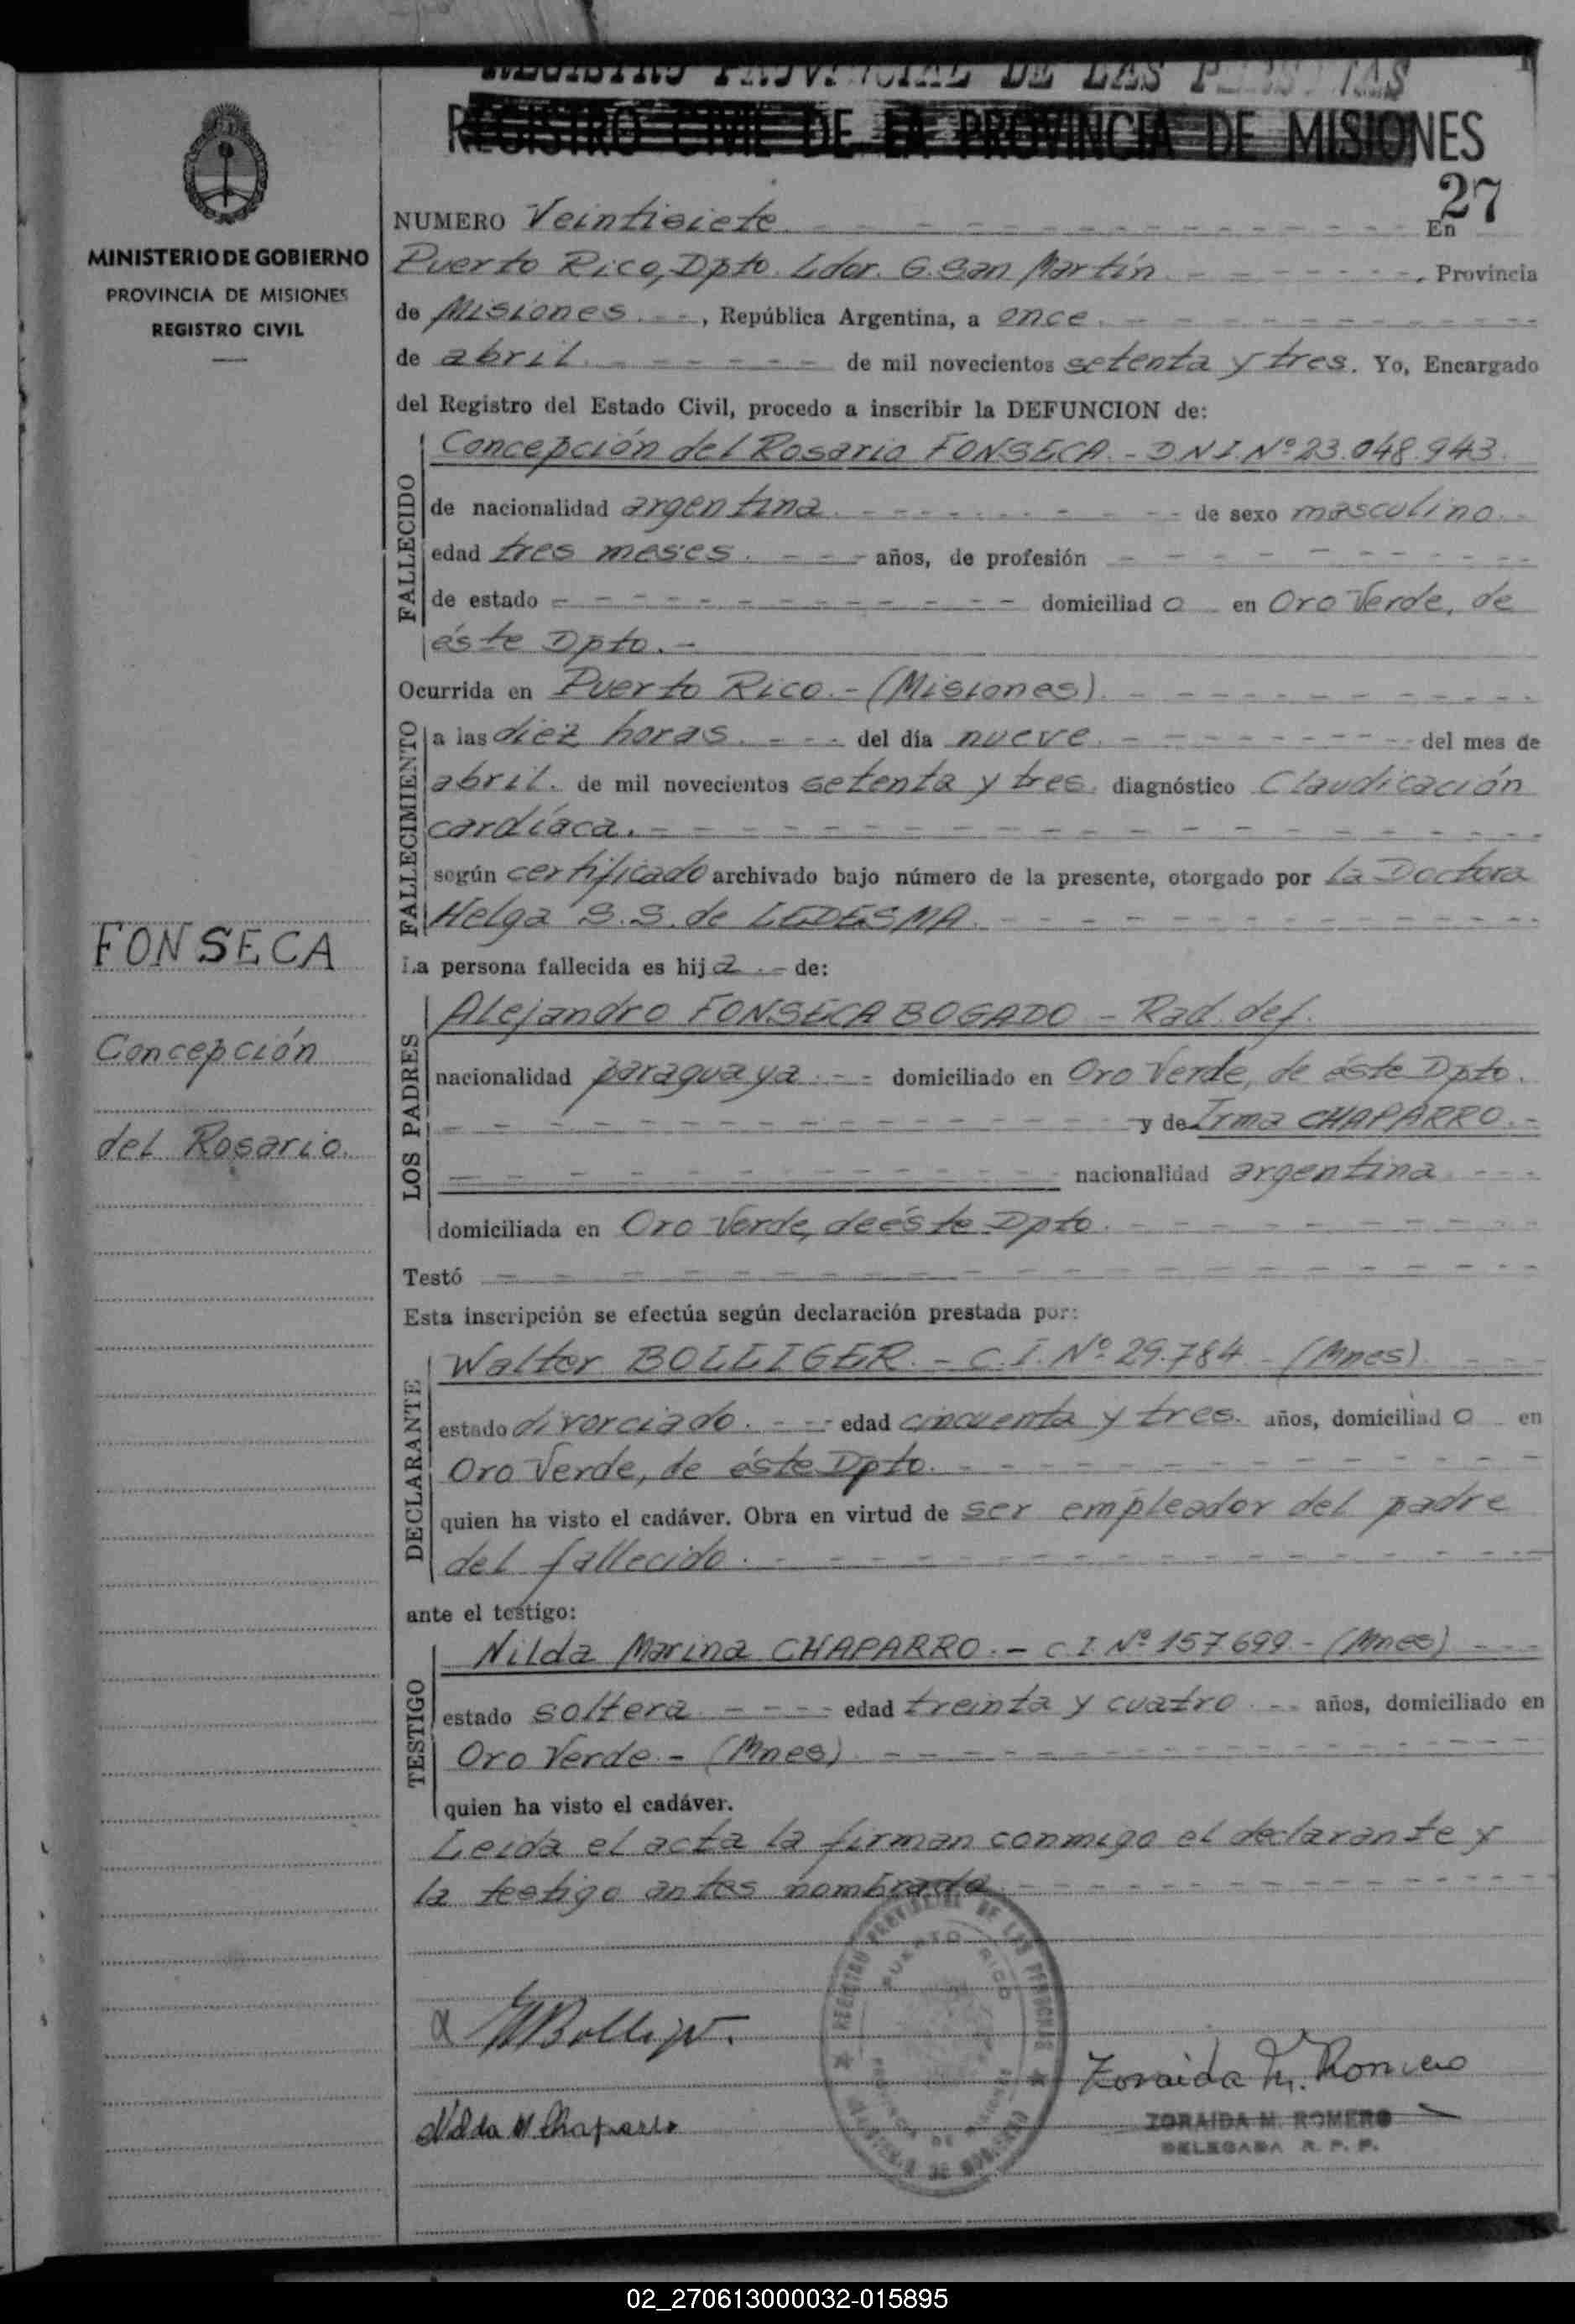 REGISTRO PROVINCIAL DE LAS PERSONAS
REGISTRO CIVIL DE LA PROVINCIA DE MISIONES
27
MINISTERIO DE GOBIERNO
PROVINCIA DE MISIONES
REGISTRO CIVIL
FONSECA
Concepción
del Rosario.
NUMERO Veintisiete En
Puerto Rico, Dpto. Ldor. G. San Martín , Provincia
de Misiones. , República Argentina, a once.
de abril. de mil novecientos setenta y tres. Yo, Encargado
del Registro del Estado Civil, procedo a inscribir la DEFUNCION de:
FALLECIDO
Concepción del Rosario FONSECA. - DNI Nº 23.048.943.
de nacionalidad argentina. de sexo masculino.
edad tres meses. años, de profesión
de estado domiciliad o en Oro Verde, de
éste Dpto. -
Ocurrida en Puerto Rico. - (Misiones).
FALLECIMIENTO
a las diez horas. del día nueve. del mes de
abril. de mil novecientos setenta y tres. diagnóstico Claudicación
cardíaca.
según certificado archivado bajo número de la presente, otorgado por la Doctora
Helga S.S. de LEDESMA.
La persona fallecida es hija. de:
LOS PADRES
Alejandro FONSECA BOGADO - Rad. def.
nacionalidad paraguaya. domiciliado en Oro Verde, de éste Dpto.
y de Irma CHAPARRO. -
nacionalidad argentina
domiciliada en Oro Verde, de éste Dpto.
Testó
Esta inscripción se efectúa según declaración prestada por:
DECLARANTE
Walter BOLLIGER. - C.I. Nº 29.784 - (Mnes)
estado divorciado. edad cincuenta y tres. años, domiciliad o en
Oro Verde, de éste Dpto.
quien ha visto el cadáver. Obra en virtud de ser empleador del padre
del fallecido.
ante el testigo:
TESTIGO
Nilda Marina CHAPARRO. - C.I. Nº 157.699 - (Mnes)
estado soltera edad treinta y cuatro. años, domiciliado en
Oro Verde. - (Mnes)
quien ha visto el cadáver.
Leida el acta la firman conmigo el declarante y
la testigo antes nombrada
REGISTRO PROVINCIAL DE LAS PERSONAS
PUERTO RICO
PROVINCIA DE MISIONES
WBolliger.
Nilda M Chaparro
Zoraida M. Romero
ZORAIDA M. ROMERO
DELEGADA R. P. P.
02_270613000032-015895